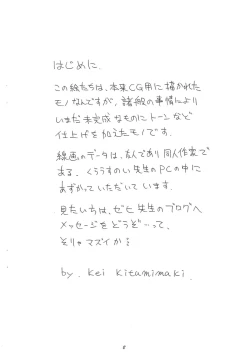 はじめに.
この絵たちは、本来CG用に描かれた
モノなんですが、諸般の事情により
いまだ未完成なものにトーンなど
仕上げを加えたモノです.
線画のデータは、友人であり同人作家で
ある、くろうすのい先生のPCの中に
あずかっていただいています.
見たい方は、ゼヒ先生のブログへ
メッセージをどうぞ…って、
そりゃマズイか
by. Kei Kitamimaki.